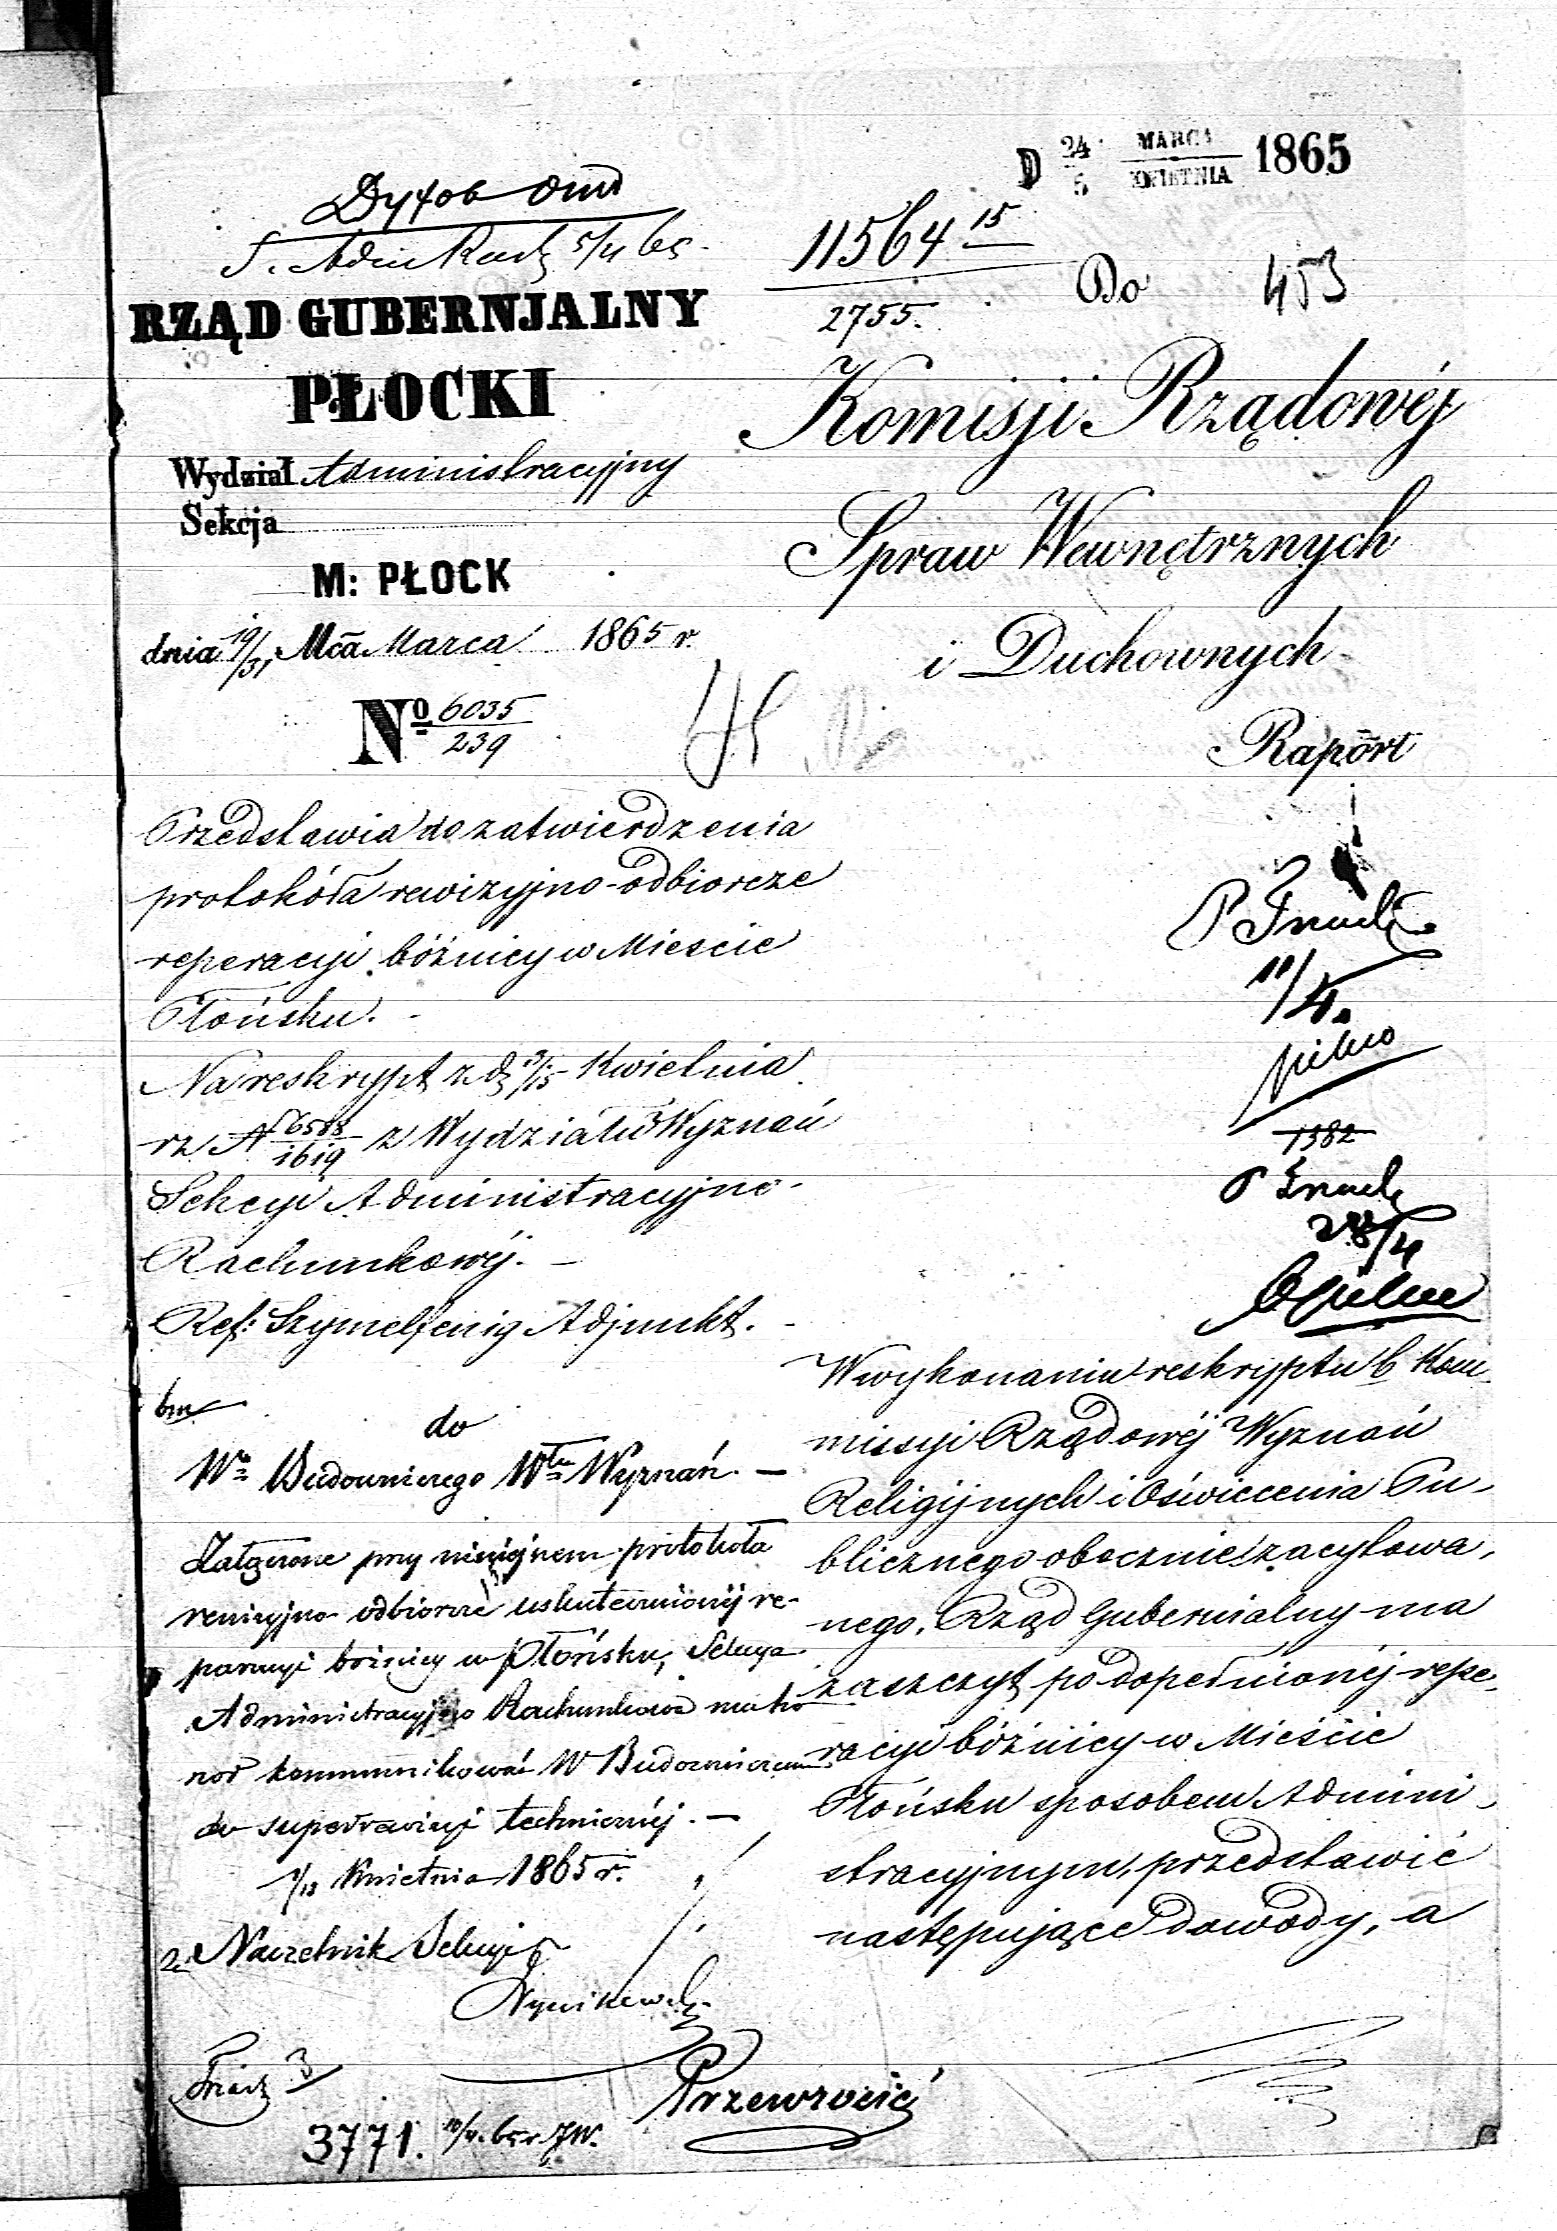 D 24/5 MARCA/KWIETNIA 1865
11564 15
2755.
Do
453
RZĄD GUBERNJALNY
PŁOCKI
Wydział Administracyjny
Sekcja
M: PŁOCK
dnia 19/31 Mca Marca 1865 r.
No 6035/239
Komisji Rządowéj
Spraw Wewnętrznych
i Duchownych
Raport
Przedstawia do zatwierdzenia
protokóła rewizyjno-odbiorcze
reperacyi bóżnicy w Mieście
Płońsku.
Na reskrypt z d. 3/15 Kwietnia
rz N 6588/1619 z Wydziału Wyznań
Sekcyi Administracyjno-
Rachunkowéj. —
Ref: Szymelfenig Adjunkt.
11/4.
1382
28/4
bm.
do
Wo Budowniczego Włu Wyznań. —
Załączone przy niniejszem protokoła
rewizyjno odbiorcze uskutecznionéj re-
paracyi bóżnicy w Płońsku, Sekcya
Administracyjno Rachunkowa ma ho
nor kommunikować W Budowniczemu
do superrewizyi technicznéj. —
1/13 Kwietnia 1865 r.
Naczelnik Sekcyi
W wykonaniu reskryptu b. Kom
missyi Rządowéj Wyznań
Religijnych i Oświecenia Pu-
blicznego obocznie zacytowa,
nego, Rząd Gubernialny ma
zaszczyt po dopełnionéj repe,
racyi bóżnicy w Mieście
Płońsku sposobem Admini,
stracyjnym, przedstawić
następujące dowody, a
3771. 10/4. 65 r.